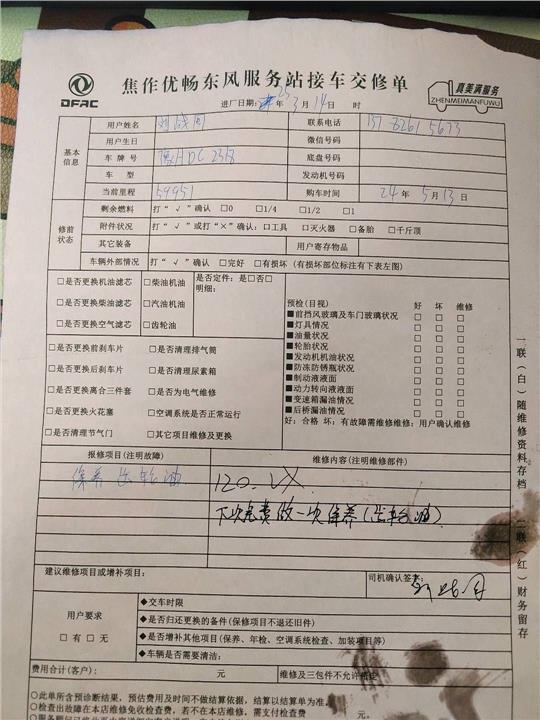 DFAC
焦作优畅东风服务站接车交修单
真美满服务
ZHENMEIMANFUWU
进厂日期: 25年 3月 14日 时
基本信息
用户姓名
联系电话 157 8261 5673
用户生日 微信号码
车牌号 底盘号码
车型 发动机号码
当前里程 59951 购车时间 24年 5月 13日
修前状态
剩余燃料 打“√”确认 □0 □1/4 □1/2 □1
附件状况 打“√”或打“×”确认: □工具 □灭火器 □备胎 □千斤顶
其它装备 用户寄存物品
车辆外部情况 打“√”确认 □完好 □有损坏(有损坏部位标注有下表左图)
□是否更换机油滤芯 □柴油机油 是否定件: 是□否□
□是否更换柴油滤芯 □汽油机油 明细:
□是否更换空气滤芯 □齿轮油
□是否更换前刹车片 □是否清理排气筒
□是否更换后刹车片 □是否清理尿素箱
□是否更换离合三件套 □是否为电气维修
□是否更换火花塞 □空调系统是否正常运行
□是否清理节气门 □其它项目维修及更换
预检(目视) 好 坏 维修
■前挡风玻璃及车门玻璃状况 □ □ □
■灯具情况 □ □ □
■油量状况 □ □ □
■轮胎状况 □ □ □
■发动机机油状况 □ □ □
■防冻防锈瓶状况 □ □ □
■制动液液面 □ □ □
■动力转向液液面 □ □ □
■变速箱漏油情况 □ □ □
■后桥漏油情况 □ □ □
好: 合格 坏: 有故障需维修维修: 用户确认维修
报修项目(注明故障) 维修内容(注明维修部件)
保养 齿轮油 120.VX
下次免费做一次保养(齿轮油)
建议维修项目或增补项目: 司机确认签字:
用户要求
□有 □无
◆交车时限
◆是否归还更换的备件(保修项目不退还旧件)
◆是否增补其他项目(保养、年检、空调系统检查、加装项目等)
◆车辆是否需要清洁:
费用合计(客户): 元 维修及三包件不允许
元
○此单所含预诊断结果, 预估费用及时间不做结算依据, 结算以结算单为准。
○检查出故障在本店维修免收检查费, 若不在本店维修, 需支付检查费
一联(白)随维修资料存档 二联(红)财务留存